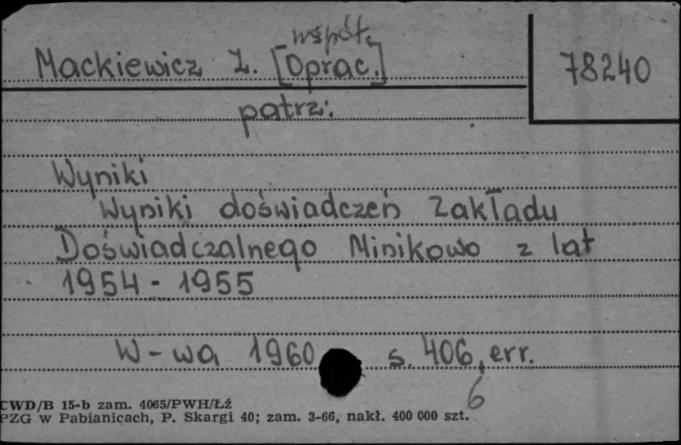 współ.
Mackiewicz Z. [Oprac.]
78240
patrz:
Wyniki
Wyniki doświadczeń Zakładu
Doświadczalnego Minikowo z lat
1954 - 1955
W-wa 1960 s. 406, err.
6
CWD/B 15-b zam. 4065/PWH/Łź
PZG w Pabianicach, P. Skargi 40; zam. 3-66, nakł. 400 000 szt.